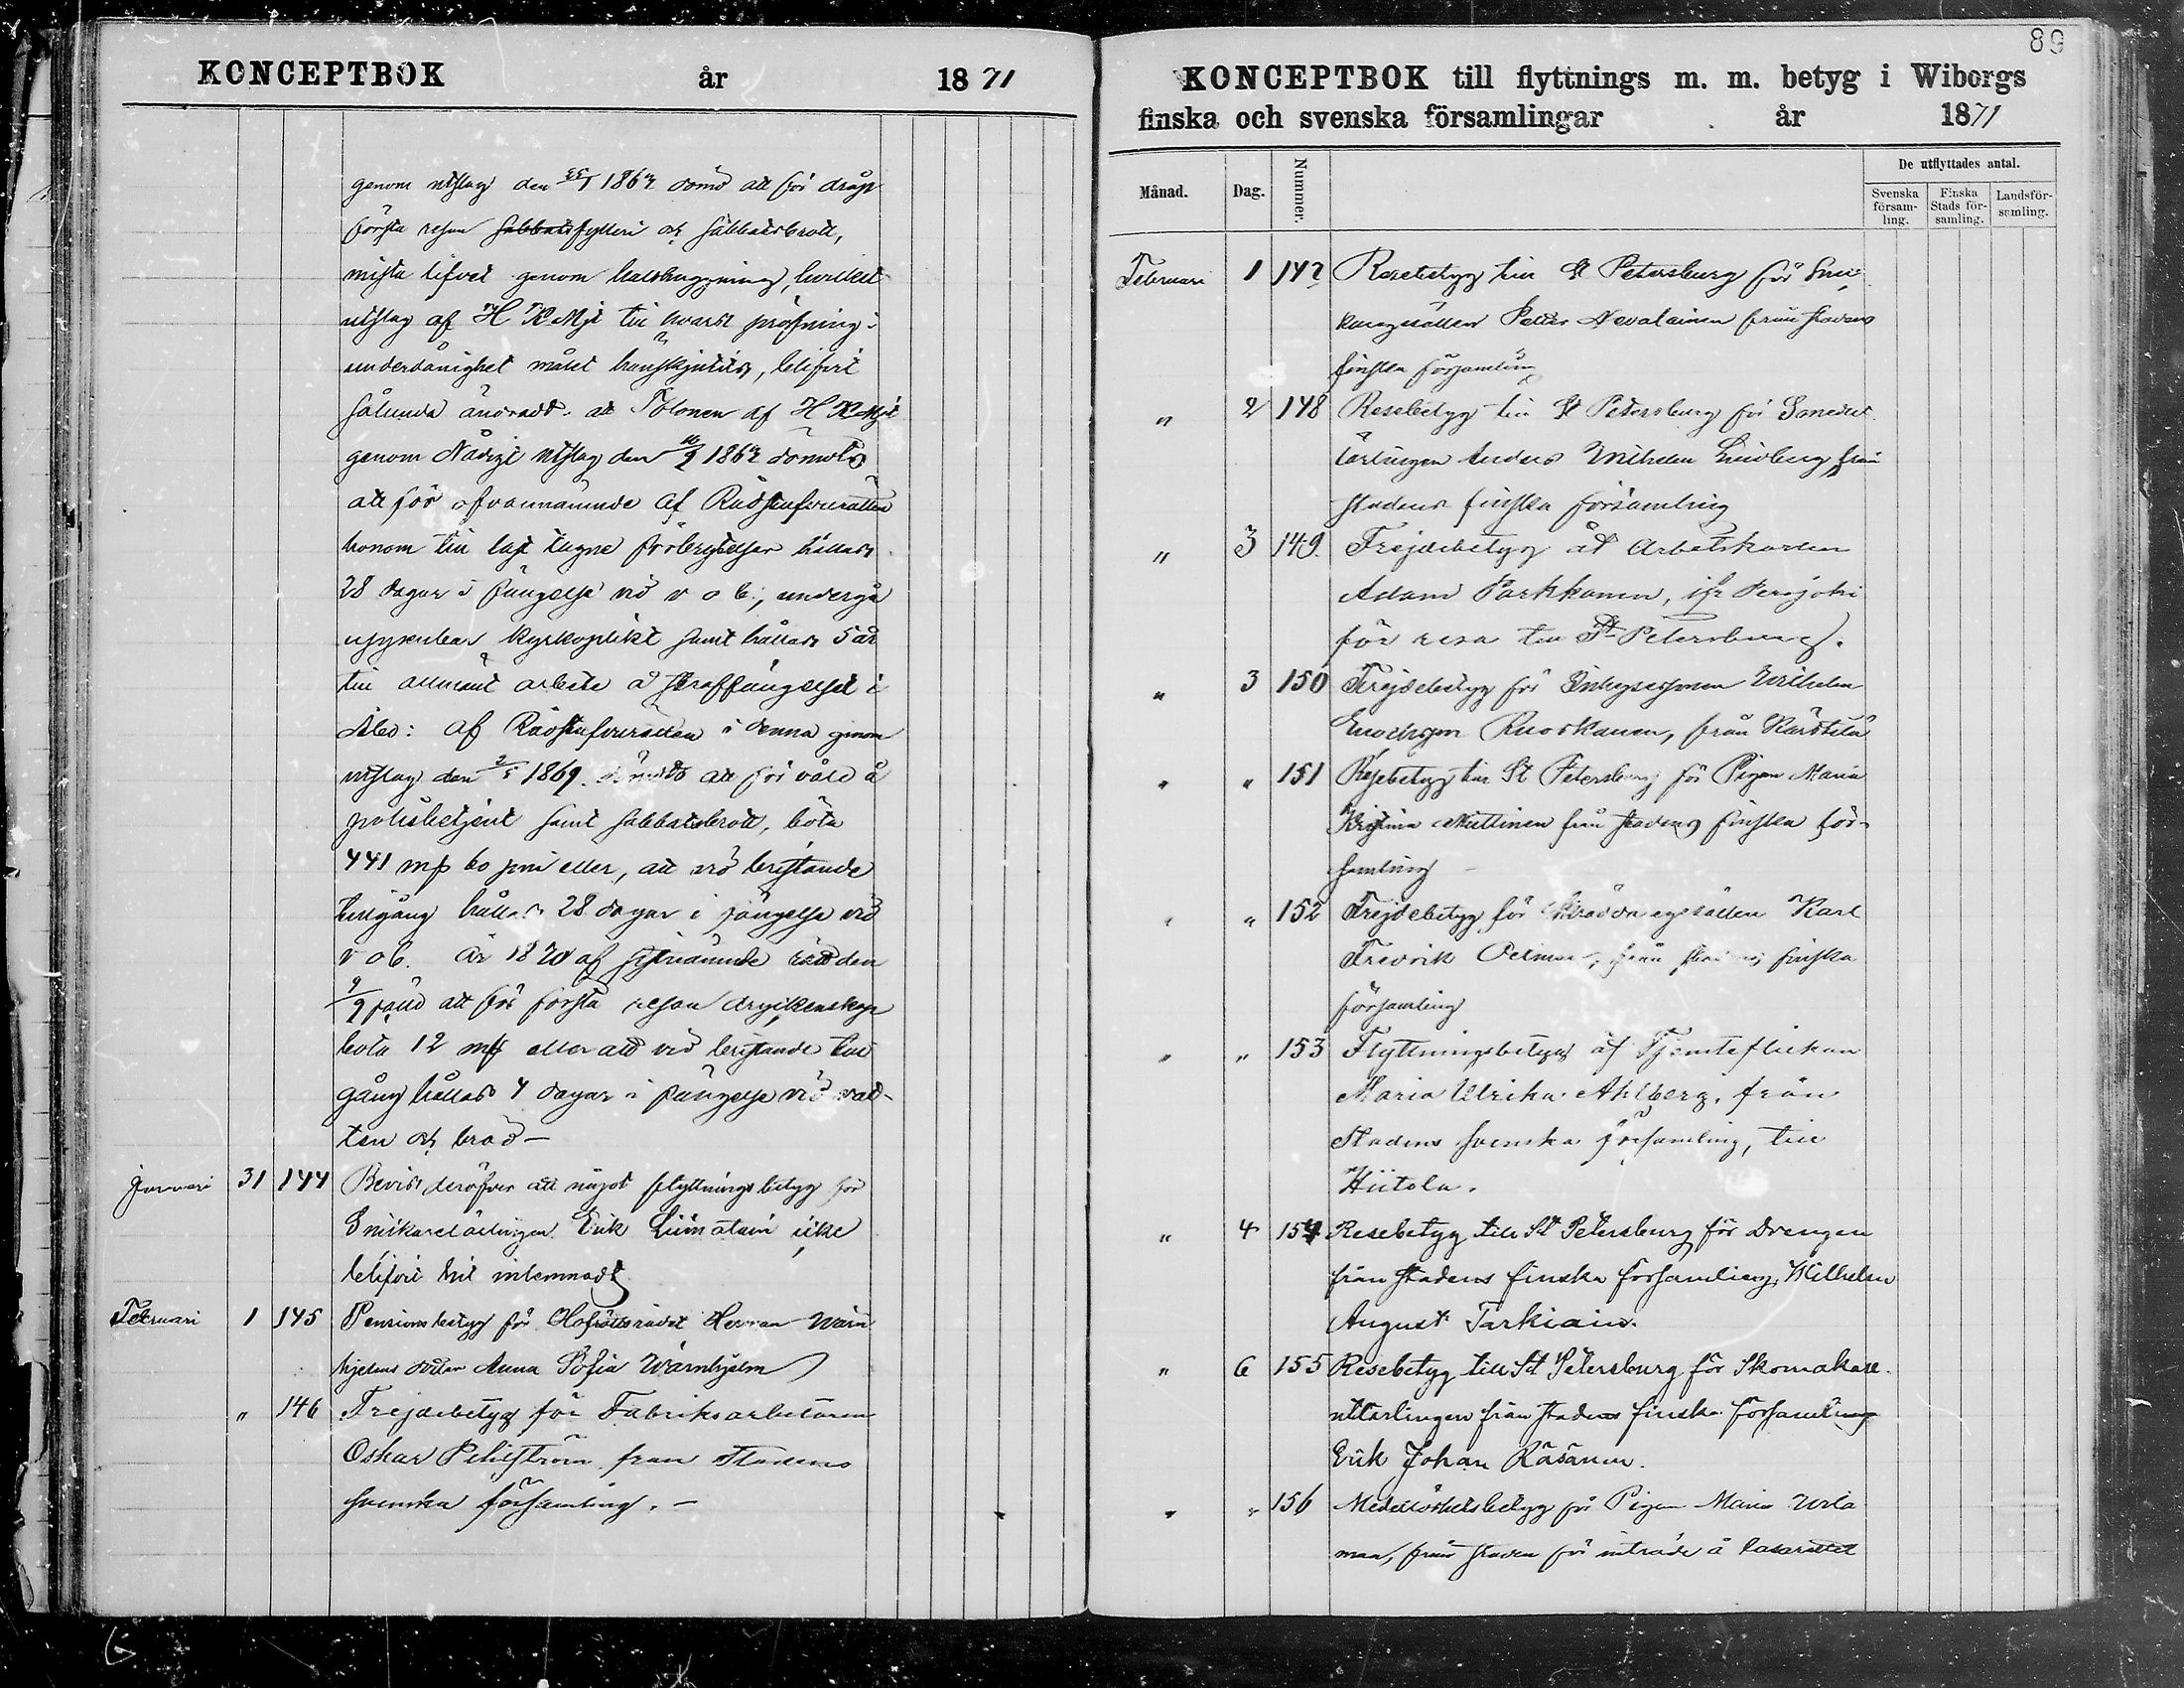 KONCEPTBOK år 1871
genom utslag den 1867 dömd att för dråp
första resan sabbatsfylleri och sabbatsbrott,
mista lifvet genom halshuggning, hvilket
utslag af H K Mjt till hvars pröfning i
underdånighet målet hänskjutits, blifvit
sålunda ändradt: att Tolonen af H K Mjt
genom Nådigt utslag den 1867 dömts
att för ofvannämnde af Rådstufvurätten
honom till last lagne förbrytelser hållas
28 dagar i fängelse vid v o b., undergå
uppenbar kyrkoplikt samt hållas 5 år
till allmänt arbete å straffängelset i
Åbo: af Rådstufvurätten i denna genom
utslag den 2/5 1869. dömts att för våld å
polisbetjent samt sabbatsbrott, böta
441 mk 60 pni eller, att vid bristande
tillgång hållas 28 dagar i fängelse vid
v o b. År 1870 af sistnämnde rätt den
9/9 att för första resan dryckenskap
böta 12 mk eller att vid bristande till
gång hållas 4 dagar i fängelse vid vat-
ten och bröd –
Januari 31 144 Bevis deröfver att något flyttningsbetyg för
Snickarelärlingen Erik Liimatain icke
blifvit hit inlemnadt
Februari 1 145 Pensionsbetyg för Hofrättsrådet Herman Wärn
hjelms dotter Anna Sofia Wärnhjelm
" 146 Frejdebetyg för Fabriksarbetaren
Oskar Pehrström från Stadens
svenska församling. –
89
KONCEPTBOK till flyttnings m. m. betyg i Wiborgs
finska och svenska församlingar år 1871
Månad. Dag. Nummer. De utflyttades antal.
Svenska församling. Finska Stads församling. Landsförsamling.
Februari 1 147 Resebetyg till St Petersburg för Sni-
karegesällen Petter Nevalainen från stadens
finska församling
" 2 148 Resebetyg till St Petersburg för Smedslärlingen Anders Wilhelm Lindberg från
stadens finska församling
" 3 149. Frejdebetyg åt Arbetskarlen
Adam Parkkonen, ifr Perojoki
för resa till St Petersburg.
" 3 150 Frejdebetyg för Inhysessonen Wilhelm
Enochsson Ruoskanen, från Kärstilä
" " 151 Resebetyg till St Petersburg för Pigan Maria
Kristina Muttinen från stadens finska för-
samling
" " 152 Frejdebetyg för Skräddaregesällen Karl
Fredrik från stadens finska
församling
" " 153 Flyttningsbetyg af Tjensteflickan
Maria Ulrika Ahlberg, från
Stadens svenska församling, till
Hiitola.
" 4 154 Resebetyg till St Petersburg för Drengen
från stadens finska församling, Wilhelm
August Tarkiain.
" 6 155 Resebetyg till St Petersburg för Skomakare
utlärlingen från stadens finska församling
Erik Johan Räsänen.
" " 156 Medellöshetsbetyg för Pigan Maria Wila
man, från staden för inträde å Lasarettet